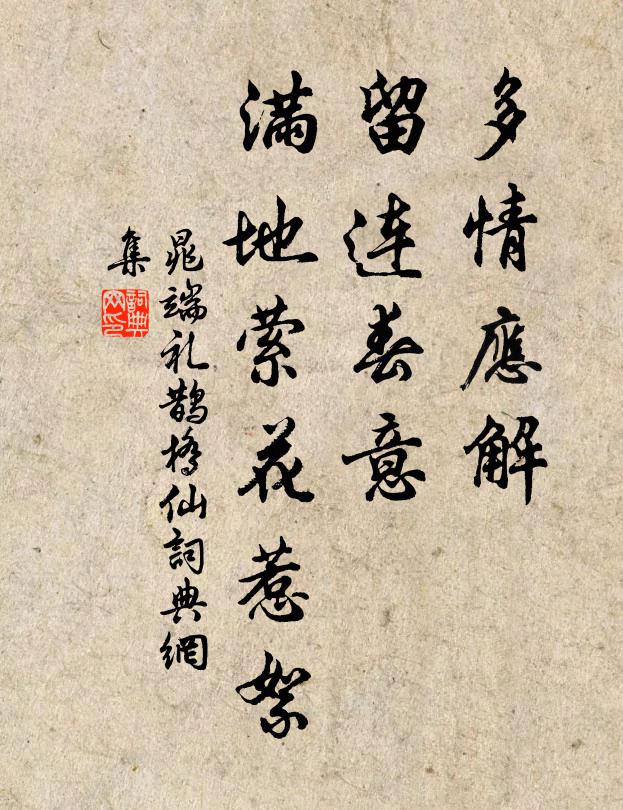 多情應解
留連春意
滿地萦花惹絮
晁端礼鵲橋仙詞典網
集
詞典
网印